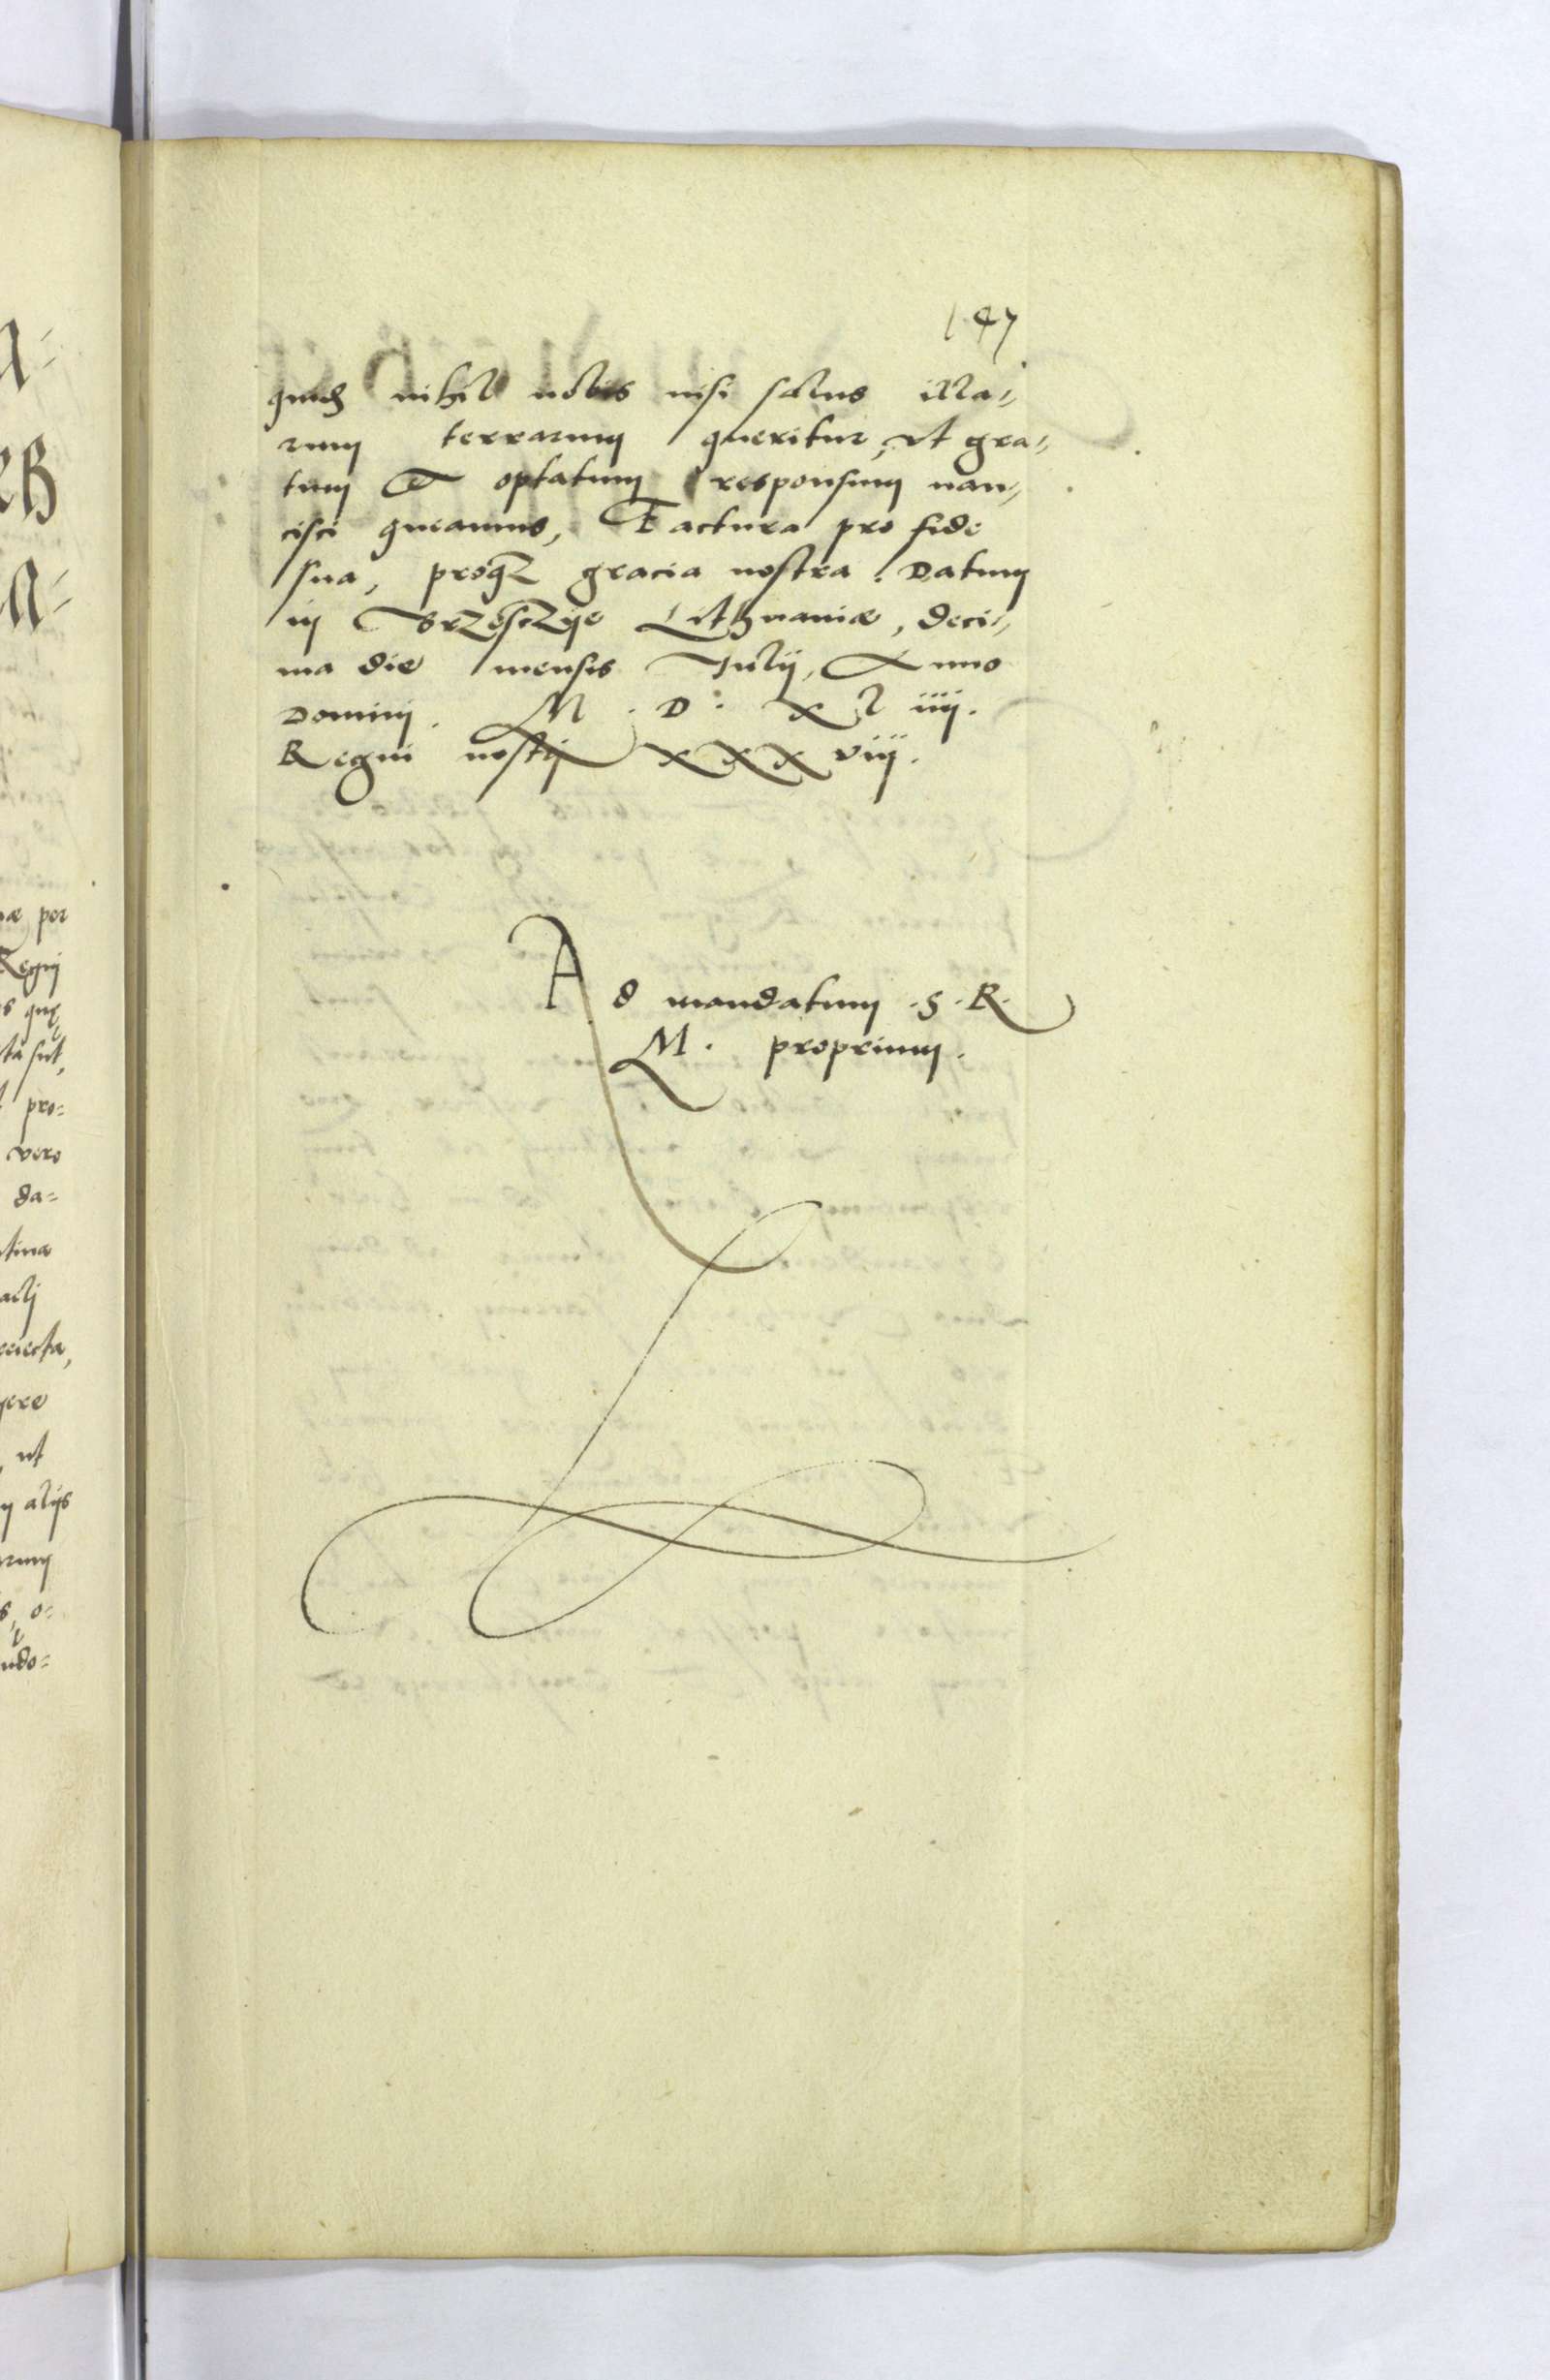 147
quid nihil nobis nisi salus illa=
rum terrarum queritur, ut gra=
tum & optatum responsum nan=
cisci queamus, Factura pro fide
sua, proq3 gracia nostra. Datum
in Brzesczye Lithuaniæ, deci=
ma die mensis Julij, Anno
Domini. M. D. xl iiij.
Regni nostri xxxviij.
Ad mandatum .S.R.
M. proprium.
æ per
Regni
pro=
vero
da=
ut
alijs